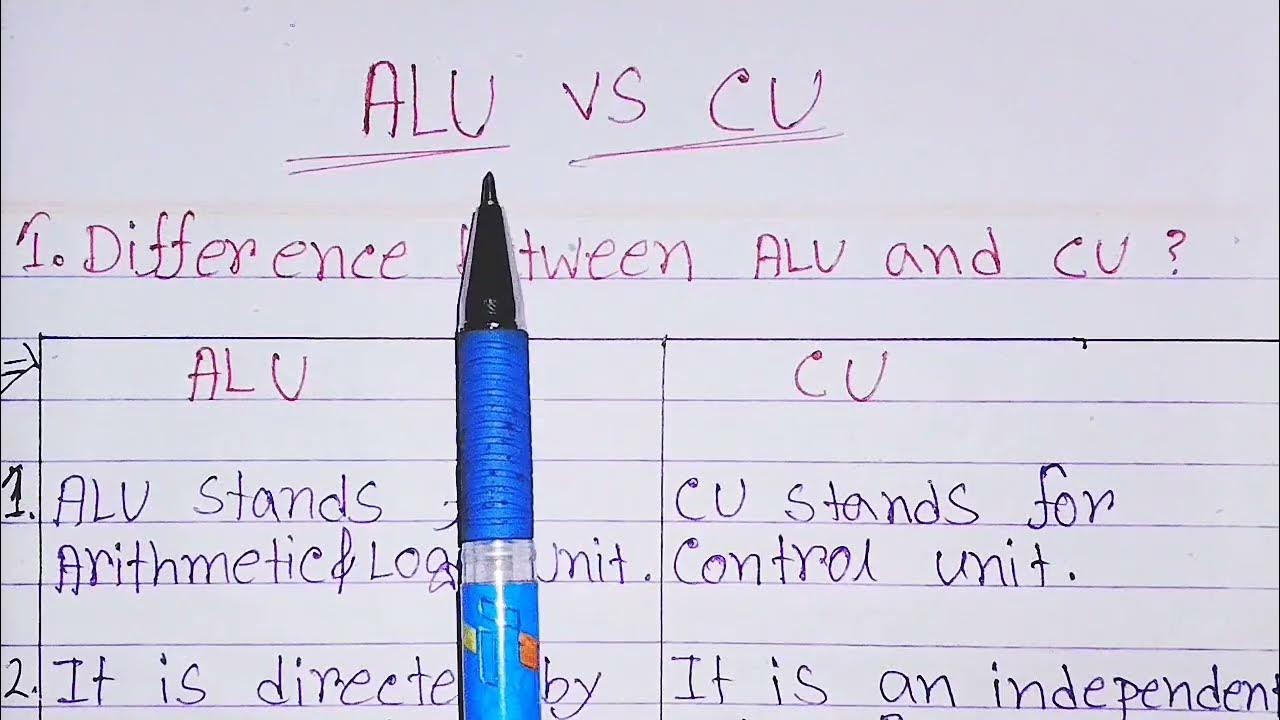 ALU VS CU
1. Difference between ALU and CU ?
ALU
CU
1. ALU stands
Arithmetic & Logic Unit.
CU stands for
Control unit.
2. It is directed by
It is an independent